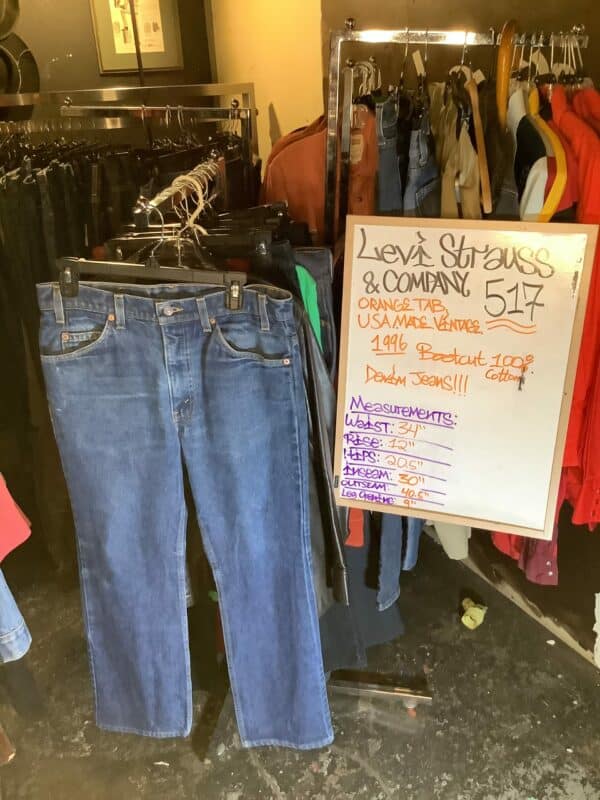 Levi Strauss
& COMPANY 517
ORANGE TAB,
USA MADE VINTAGE
1996 Bootcut 100%
Cotton
Denim Jeans!!!
Measurements:
Waist: 34"
Rise: 12"
Hips: 20.5"
Inseam: 30"
Outseam: 40.5"
Leg Opening: 9"